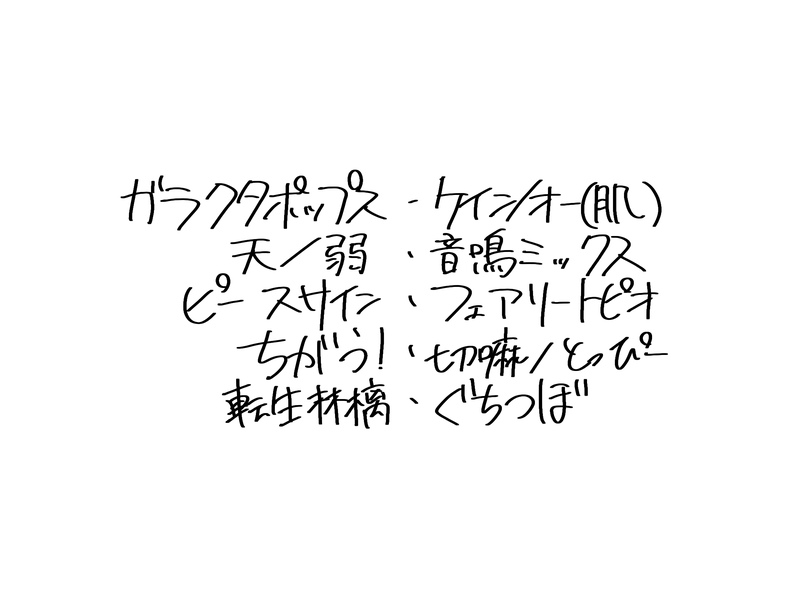 ガラクタポップス・ケインノオー(肌)
天ノ弱・音鳴ミックス
ピースサイン・フェアリートピオ
ちがう!・切嘛/とっぴー
転生林檎・ぐちつぼ